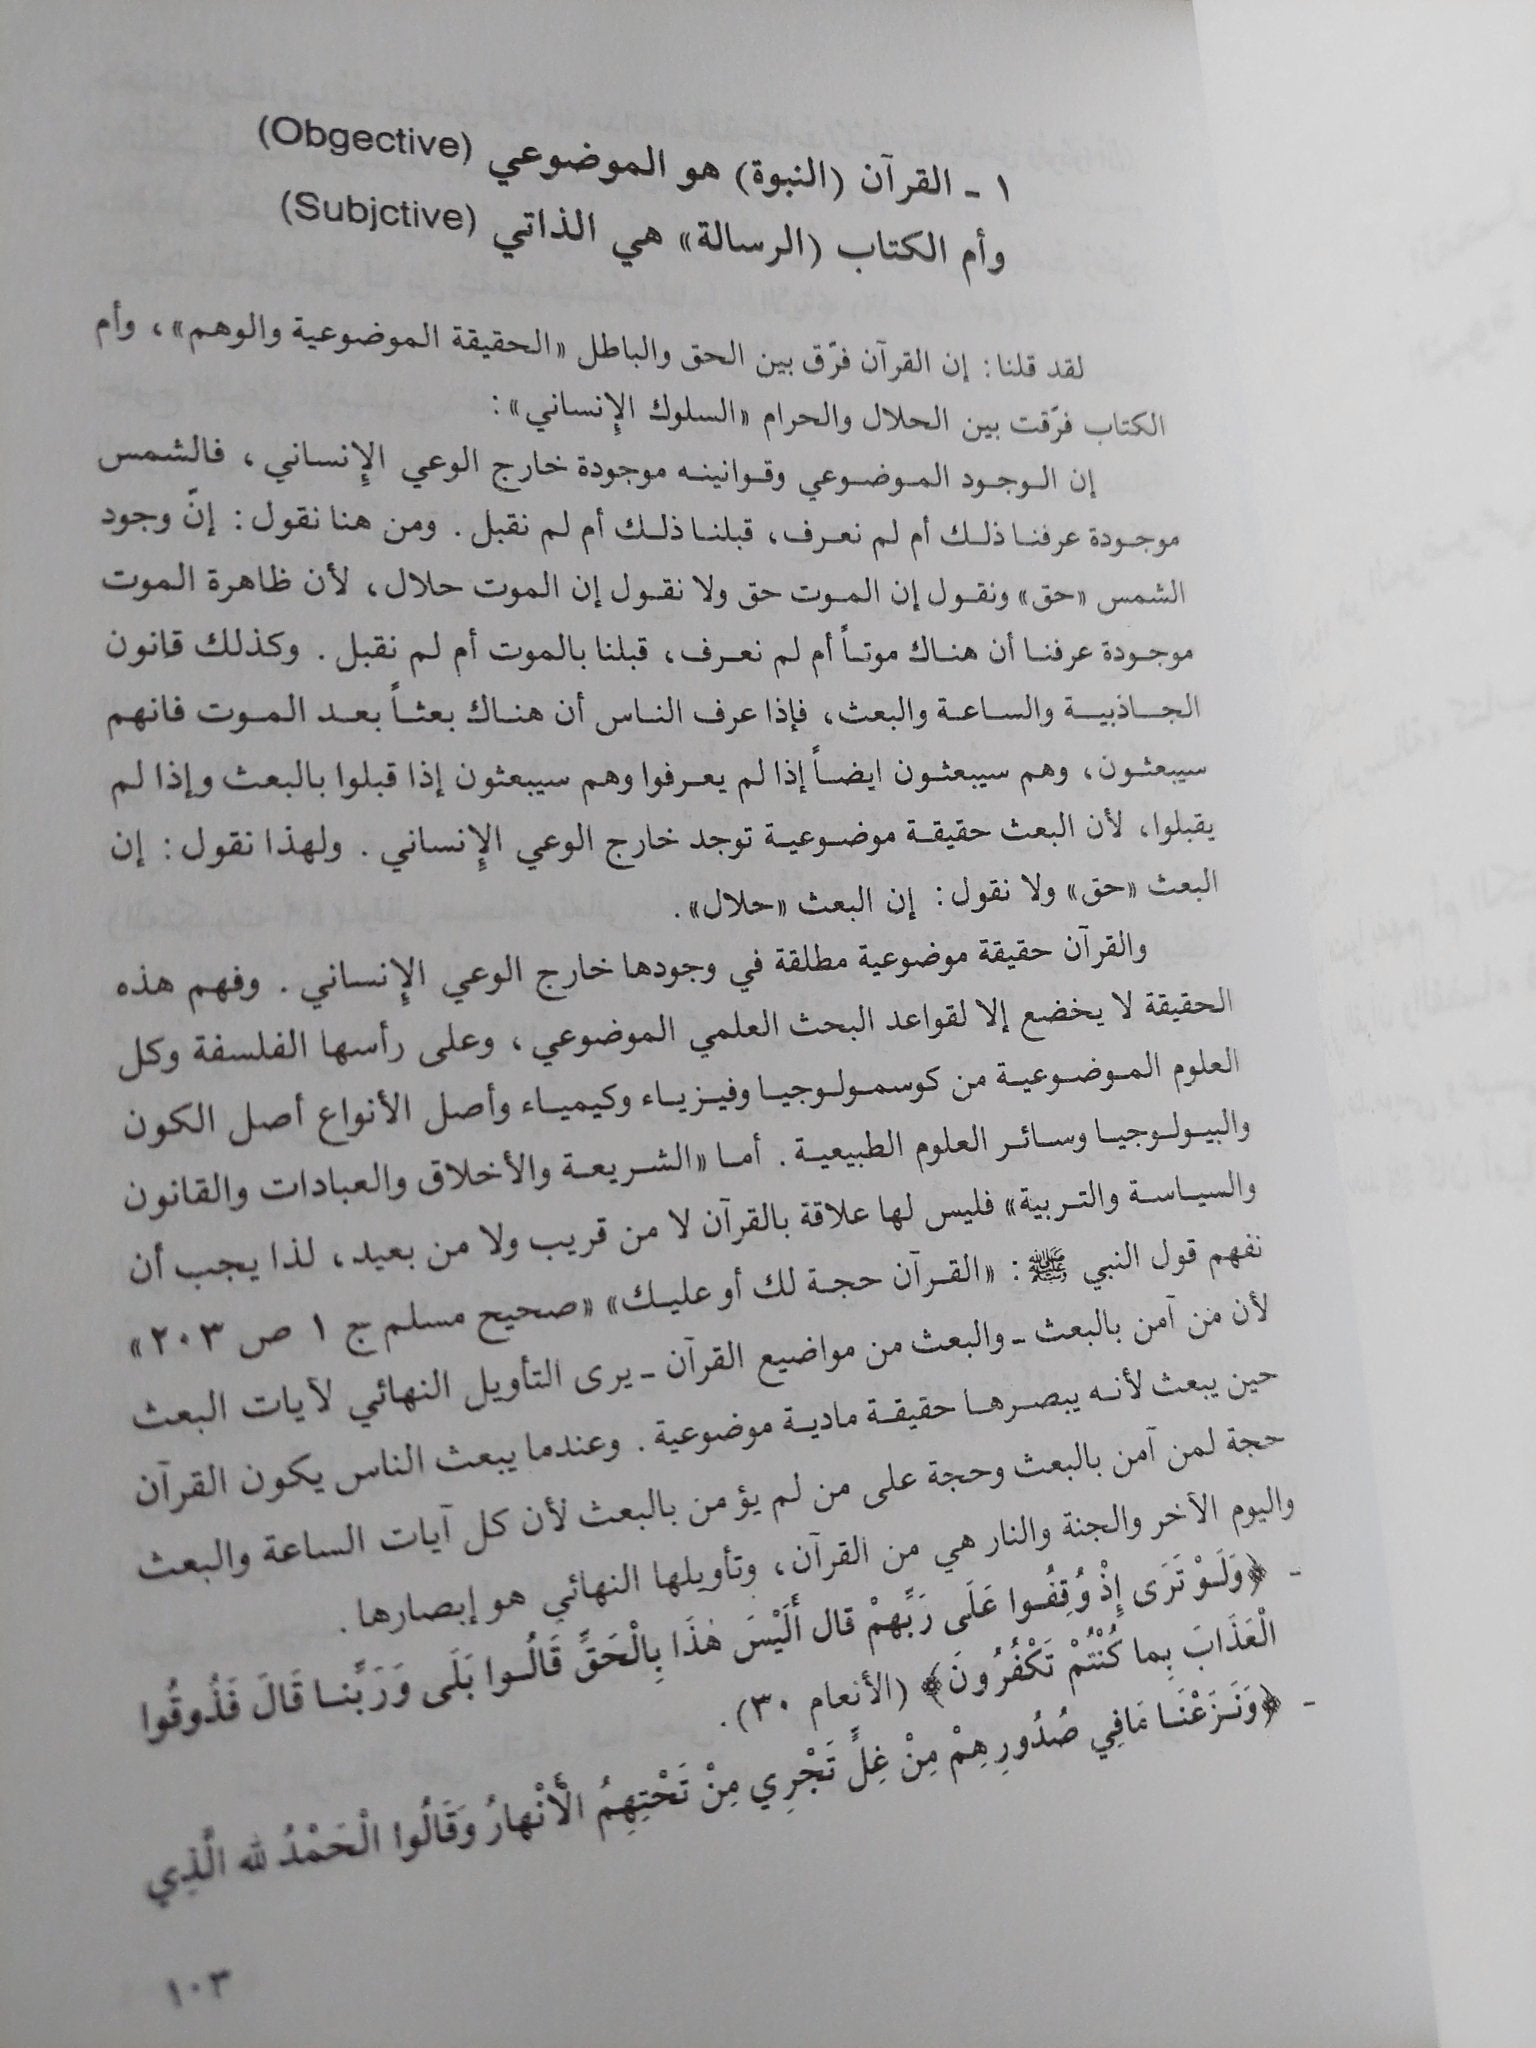 ١ ـ القرآن (النبوة) هو الموضوعي (Obgective)
وأم الكتاب (الرسالة» هي الذاتي (Subjctive)
لقد قلنا: إن القرآن فرّق بين الحق والباطل «الحقيقة الموضوعية والوهم»، وأم
الكتاب فرّقت بين الحلال والحرام «السلوك الإنساني»:
إن الوجود الموضوعي وقوانينه موجودة خارج الوعي الإنساني، فالشمس
موجودة عرفنا ذلك أم لم نعرف، قبلنا ذلك أم لم نقبل. ومن هنا نقول: إنّ وجود
الشمس «حق» ونقول إن الموت حق ولا نقول إن الموت حلال، لأن ظاهرة الموت
موجودة عرفنا أن هناك موتاً أم لم نعرف، قبلنا بالموت أم لم نقبل. وكذلك قانون
الجاذبية والساعة والبعث، فإذا عرف الناس أن هناك بعثاً بعد الموت فانهم
سيبعثون، وهم سيبعثون ايضاً إذا لم يعرفوا وهم سيبعثون إذا قبلوا بالبعث وإذا لم
يقبلوا، لأن البعث حقيقة موضوعية توجد خارج الوعي الإنساني. ولهذا نقول: إن
البعث «حق» ولا نقول: إن البعث «حلال».
والقرآن حقيقة موضوعية مطلقة في وجودها خارج الوعي الإنساني. وفهم هذه
الحقيقة لا يخضع إلا لقواعد البحث العلمي الموضوعي، وعلى رأسها الفلسفة وكل
العلوم الموضوعية من كوسمولوجيا وفيزياء وكيمياء وأصل الأنواع أصل الكون
والبيولوجيا وسائر العلوم الطبيعية. أما «الشريعة والأخلاق والعبادات والقانون
والسياسة والتربية» فليس لها علاقة بالقرآن لا من قريب ولا من بعيد، لذا يجب أن
نفهم قول النبي ﷺ: «القرآن حجة لك أو عليك» «صحيح مسلم ج ١ ص ٢٠٣»
لأن من آمن بالبعث ـ والبعث من مواضيع القرآن ـ يرى التأويل النهائي لآيات البعث
حين يبعث لأنه يبصرها حقيقة مادية موضوعية. وعندما يبعث الناس يكون القرآن
حجة لمن آمن بالبعث وحجة على من لم يؤمن بالبعث لأن كل آيات الساعة والبعث
واليوم الآخر والجنة والنار هي من القرآن، وتأويلها النهائي هو إبصارها.
ـ ﴿وَلَوْ تَرَى إِذْ وُقِفُوا عَلَى رَبِّهِمْ قال أَلَيْسَ هٰذَا بِالْحَقِّ قَالُوا بَلَى وَرَبِّنا قَالَ فَذُوقُوا
الْعَذَابَ بِما كُنْتُمْ تَكْفُرُونَ﴾ (الأنعام ٣٠).
ـ ﴿وَنَزَعْنَا مَافِي صُدُورِهِمْ مِنْ غِلٍّ تَجْرِي مِنْ تَحْتِهِمُ الْأَنْهارُ وَقَالُوا الْحَمْدُ لله الَّذِي
١٠٣